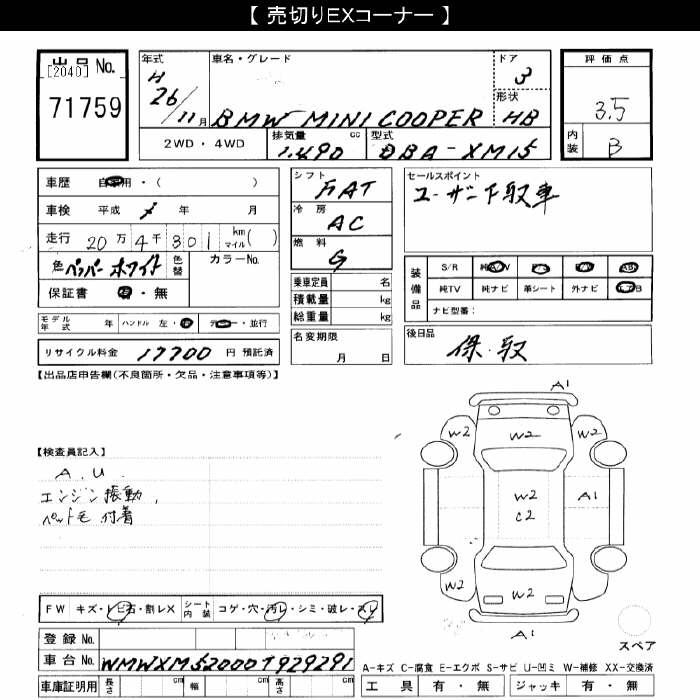 【 売切りEXコーナー 】
出品 No.
[2040]
71759
年式
H
26/11月
車名・グレード
BMW MINI COOPER
ドア
3
形状
HB
評価点
3.5
内装 B
2WD・4WD
排気量 cc
1.490
型式
DBA-XM15
車歴 自家用・( )
車検 平成 年 月
走行 20万4千301 km マイル( )
色 ペッパーホワイト 色替 カラーNo.
保証書 有・無
シフト
FAT
冷房
AC
燃料
G
乗車定員 名
積載量 kg
総重量 kg
名変期限
月 日
セールスポイント
ユーザー下取車
装備品
S/R 純A/V P/S P/W AB
純TV 純ナビ 革シート 外ナビ エアB
ナビ型番:
モデル年式 年 ハンドル 左・右 ディーラー・並行
リサイクル料金 17700 円 預託済
後日品
保・取
【出品店申告欄(不良箇所・欠品・注意事項等)】
【検査員記入】
A.U.
エンジン振動,
ペット毛付着
A1
W2
W2
W2
W2
C2
A1
W2
W2
W2
A1
スペア
FW キズ・トビ石・割レX シート内装 コゲ・穴・汚レ・シミ・破レ・スレ
登録 No.
車台 No. WMWXM52000T929291
車庫証明用 長さ cm 幅 cm 高さ cm
A-キズ C-腐食 E-エクボ S-サビ U-凹ミ W-補修 XX-交換済
工具 有・無 ジャッキ 有・無